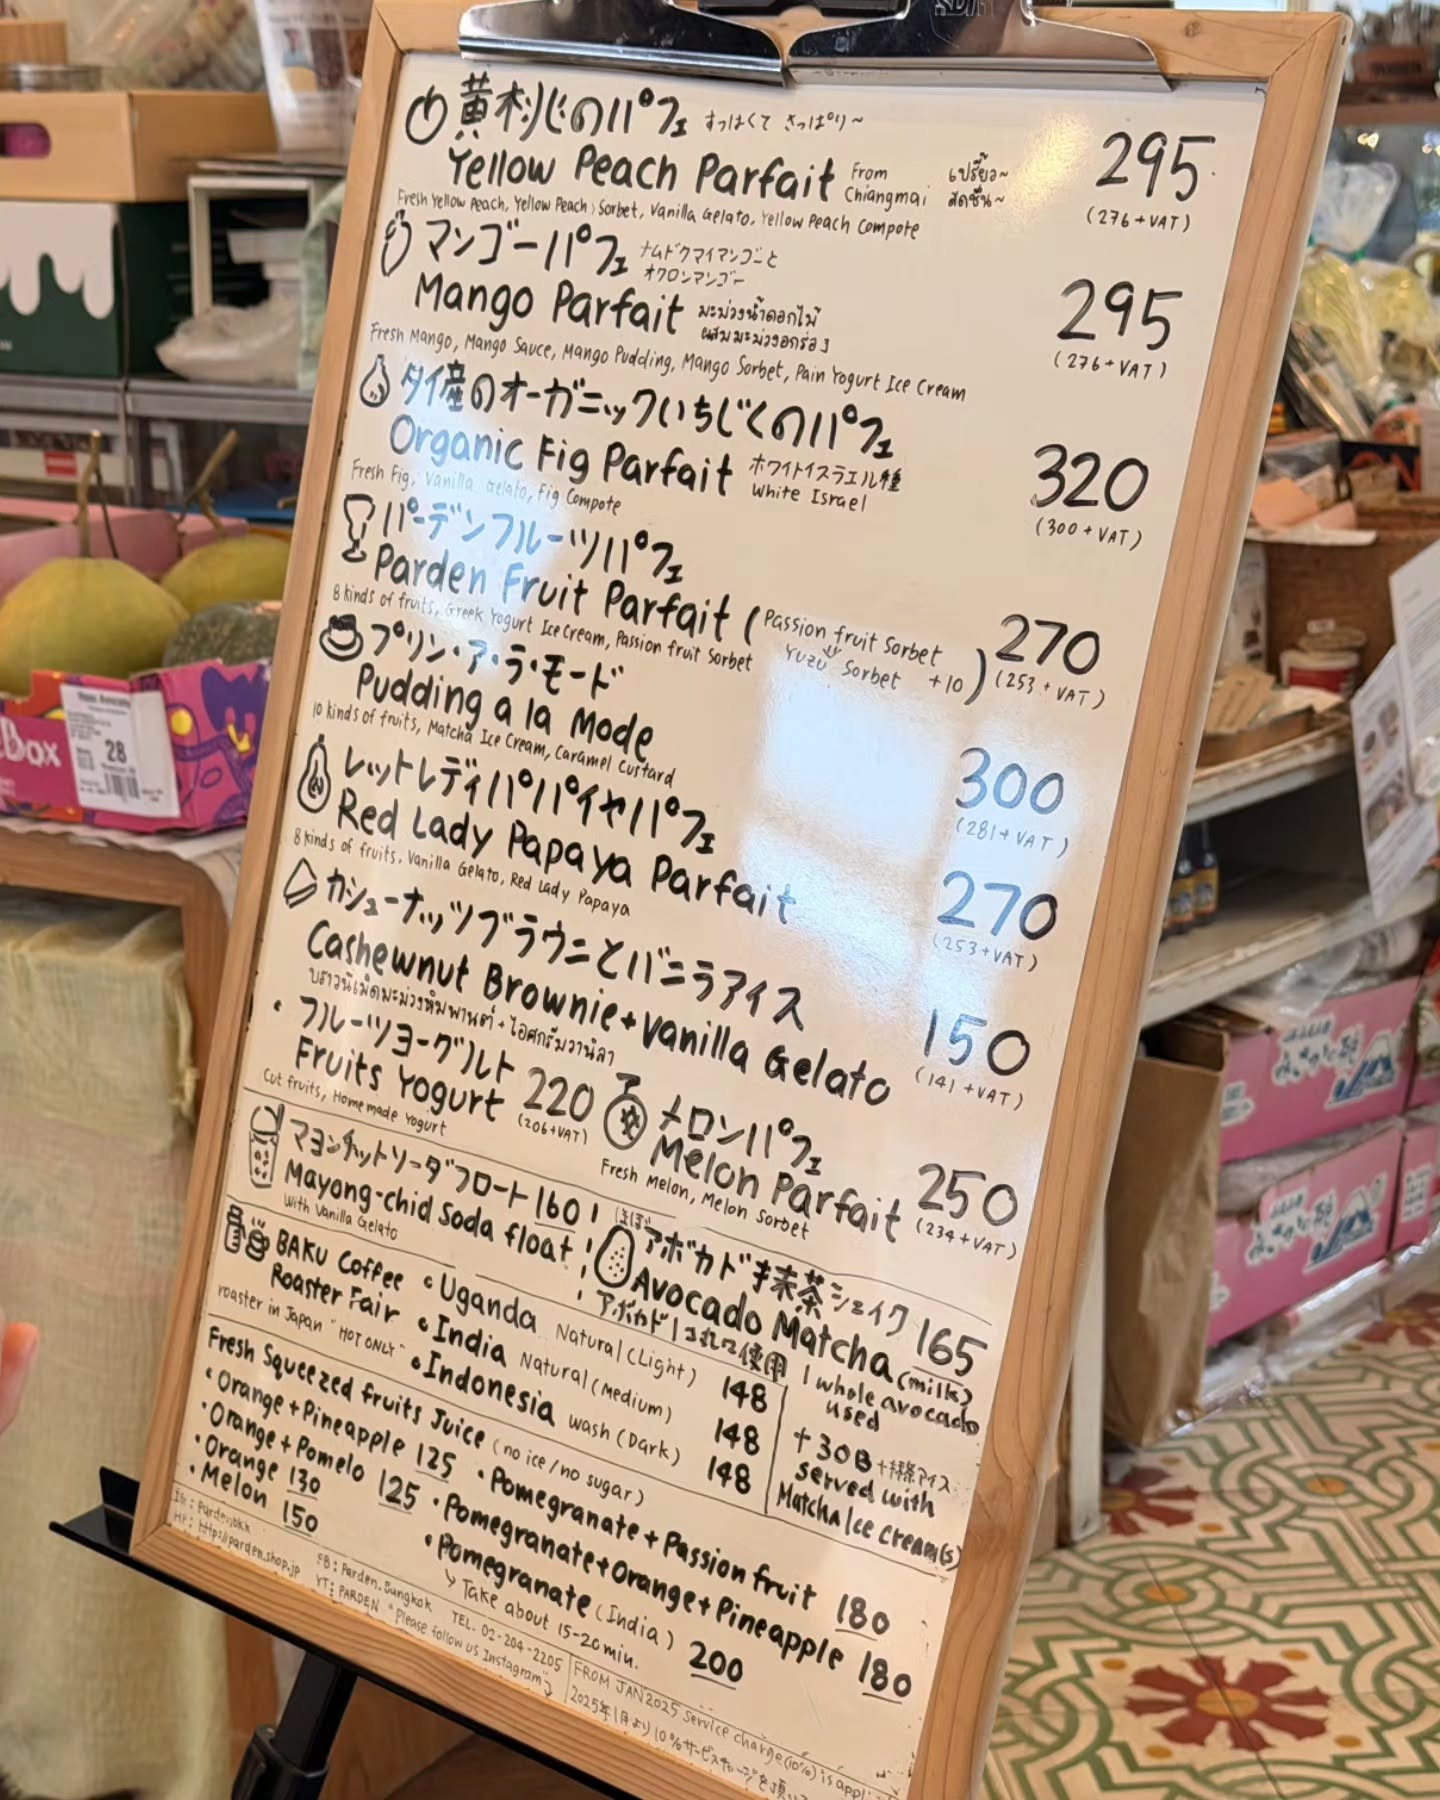 黄桃のパフェ すっぱくて さっぱり~
Yellow Peach Parfait From Chiangmai เปรี้ยว~ สดชื่น~ 295
(276+VAT)
Fresh Yellow Peach, Yellow Peach Sorbet, Vanilla Gelato, Yellow Peach Compote
マンゴーパフェ ナムドクマイマンゴーと オクロンマンゴー
Mango Parfait มะม่วงน้ำดอกไม้ ผสมมะม่วงอกร่อง 295
(276+VAT)
Fresh Mango, Mango Sauce, Mango Pudding, Mango Sorbet, Pain Yogurt Ice Cream
タイ産のオーガニックいちじくのパフェ
Organic Fig Parfait ホワイトイスラエル種 White Israel 320
(300+VAT)
Fresh Fig, Vanilla Gelato, Fig Compote
パーデンフルーツパフェ
Parden Fruit Parfait (Passion fruit Sorbet Yuzu Sorbet +10) 270
(253+VAT)
8 kinds of fruits, Greek Yogurt Ice Cream, Passion fruit Sorbet
プリン・ア・ラ・モード
Pudding a la Mode 300
(281+VAT)
10 kinds of fruits, Matcha Ice Cream, Caramel Custard
レットレディパパイヤパフェ
Red Lady Papaya Parfait 270
(253+VAT)
8 kinds of fruits, Vanilla Gelato, Red Lady Papaya
カシューナッツブラウニーとバニラアイス
Cashewnut Brownie + Vanilla Gelato 150
(141+VAT)
บราวนี่เม็ดมะม่วงหิมพานต์ + ไอศกรีมวานิลา
・フルーツヨーグルト
Fruits Yogurt 220
(206+VAT)
Cut fruits, Homemade Yogurt
メロンパフェ
Melon Parfait 250
(234+VAT)
Fresh Melon, Melon Sorbet
マヨンチットソーダフロート 160
Mayong-chid Soda float
with Vanilla Gelato
ほぼアボカド抹茶シェイク 165
Avocado Matcha (milk)
アボカド1コ丸ごと使用
1 whole avocado used
+30B +抹茶アイス
served with
Matcha Ice cream(s)
BAKU Coffee
Roaster Fair
roaster in Japan "HOT ONLY"
• Uganda Natural (Light) 148
• India Natural (Medium) 148
• Indonesia wash (Dark) 148
Fresh Squeezed fruits Juice (no ice/no sugar)
• Orange + Pineapple 125
• Orange + Pomelo 125
• Orange 130
• Melon 150
• Pomegranate + Passion fruit 180
• Pomegranate + Orange + Pineapple 180
• Pomegranate (India) 200
Take about 15-20 min.
IG: Pardenbkk
HP: http://parden.shop.jp
FB: Parden.Bangkok TEL. 02-204-2205
YT: PARDEN *Please follow us Instagram
FROM JAN 2025 service charge (10%) is
2025年1月より10%サービスチャージを
Box
28